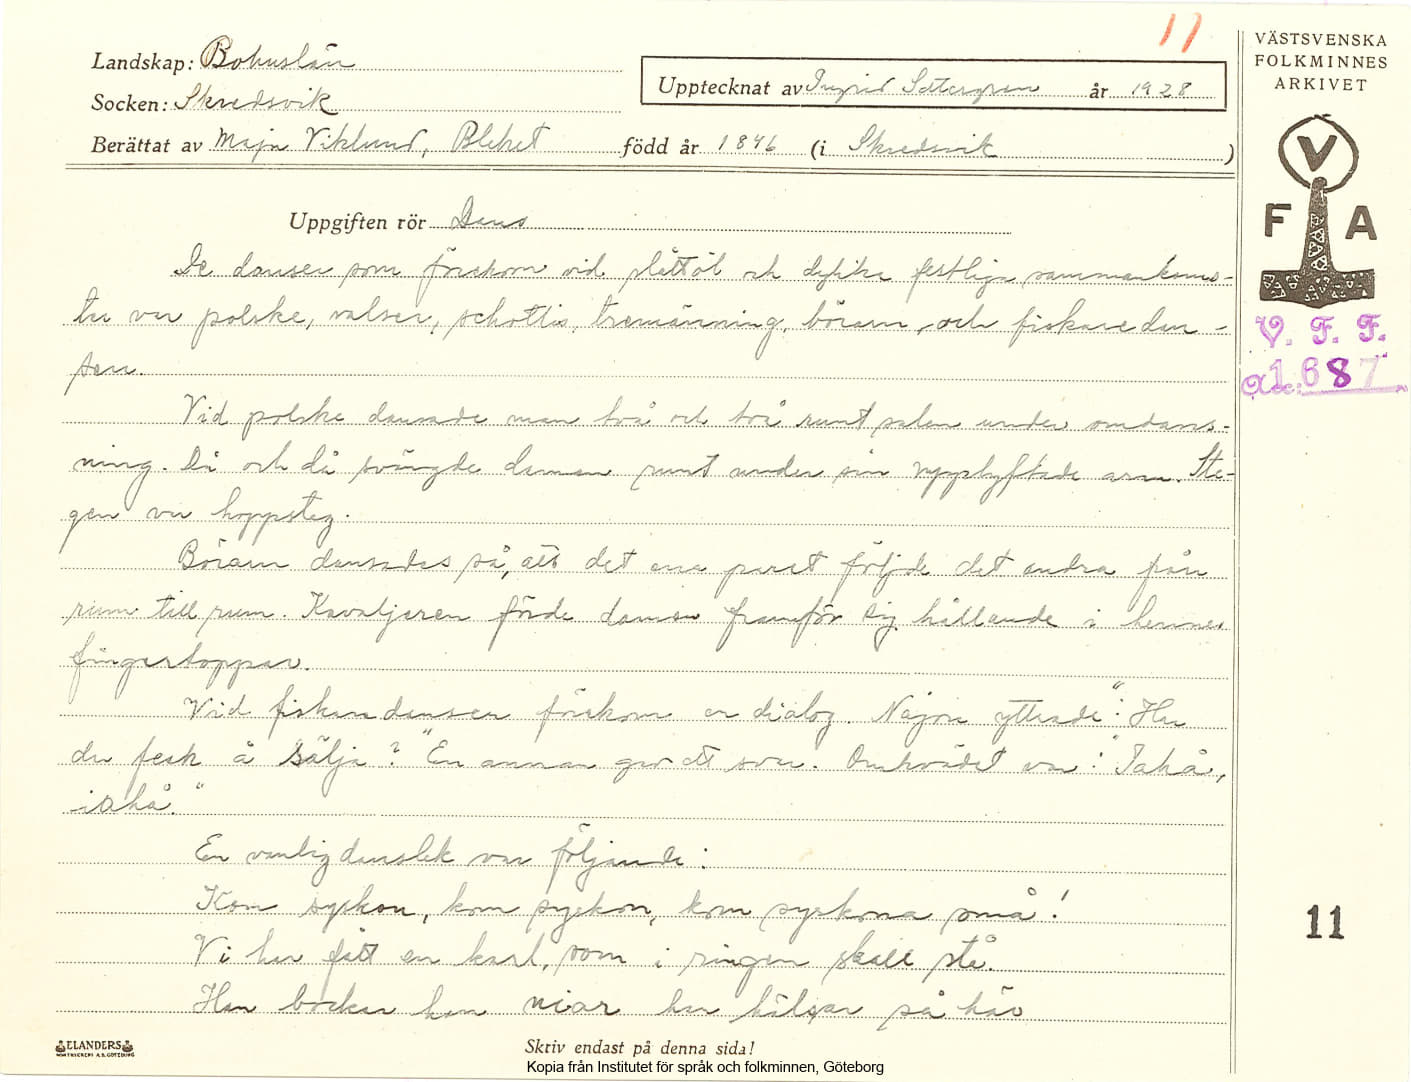 11
Landskap: Bohuslän
Socken: Skredsvik
Upptecknat av Ingrid Settergren år 1928
Berättat av Maja Viklund, Bleket född år 1846 (i Skredsvik )
VÄSTSVENSKA
FOLKMINNES
ARKIVET
V
F A
V. F. F.
1687
Uppgiften rör Dans
De danser som förekom vid slåttöl och dylika festliga sammankoms-
ter var polska, valser, schottis, tremänning, böram, och fiskaredan-
sen.
Vid polska dansade man två och två runt salen under omdans-
ning. Då och då svängde damen runt under sin upplyftade arm. Ste-
gen var hoppsteg.
Böram dansades så, att det ena paret följde det andra från
rum till rum. Kavaljeren förde damen framför sig hållande i hennes
fingertoppar.
Vid fiskaredansen förekom en dialog. Någon yttrade: "Har
du fesk å sälja?" En annan gav ett svar. Omkvädet var: "Jahå,
jahå."
En vanlig danslek var följande:
Kom syskon, kom syskon, kom syskona små!
Vi har fått en karl, som i ringen skall stå.
Han bockar han niar han hälsar på här
11
ELANDERS
Skriv endast på denna sida!
Kopia från Institutet för språk och folkminnen, Göteborg